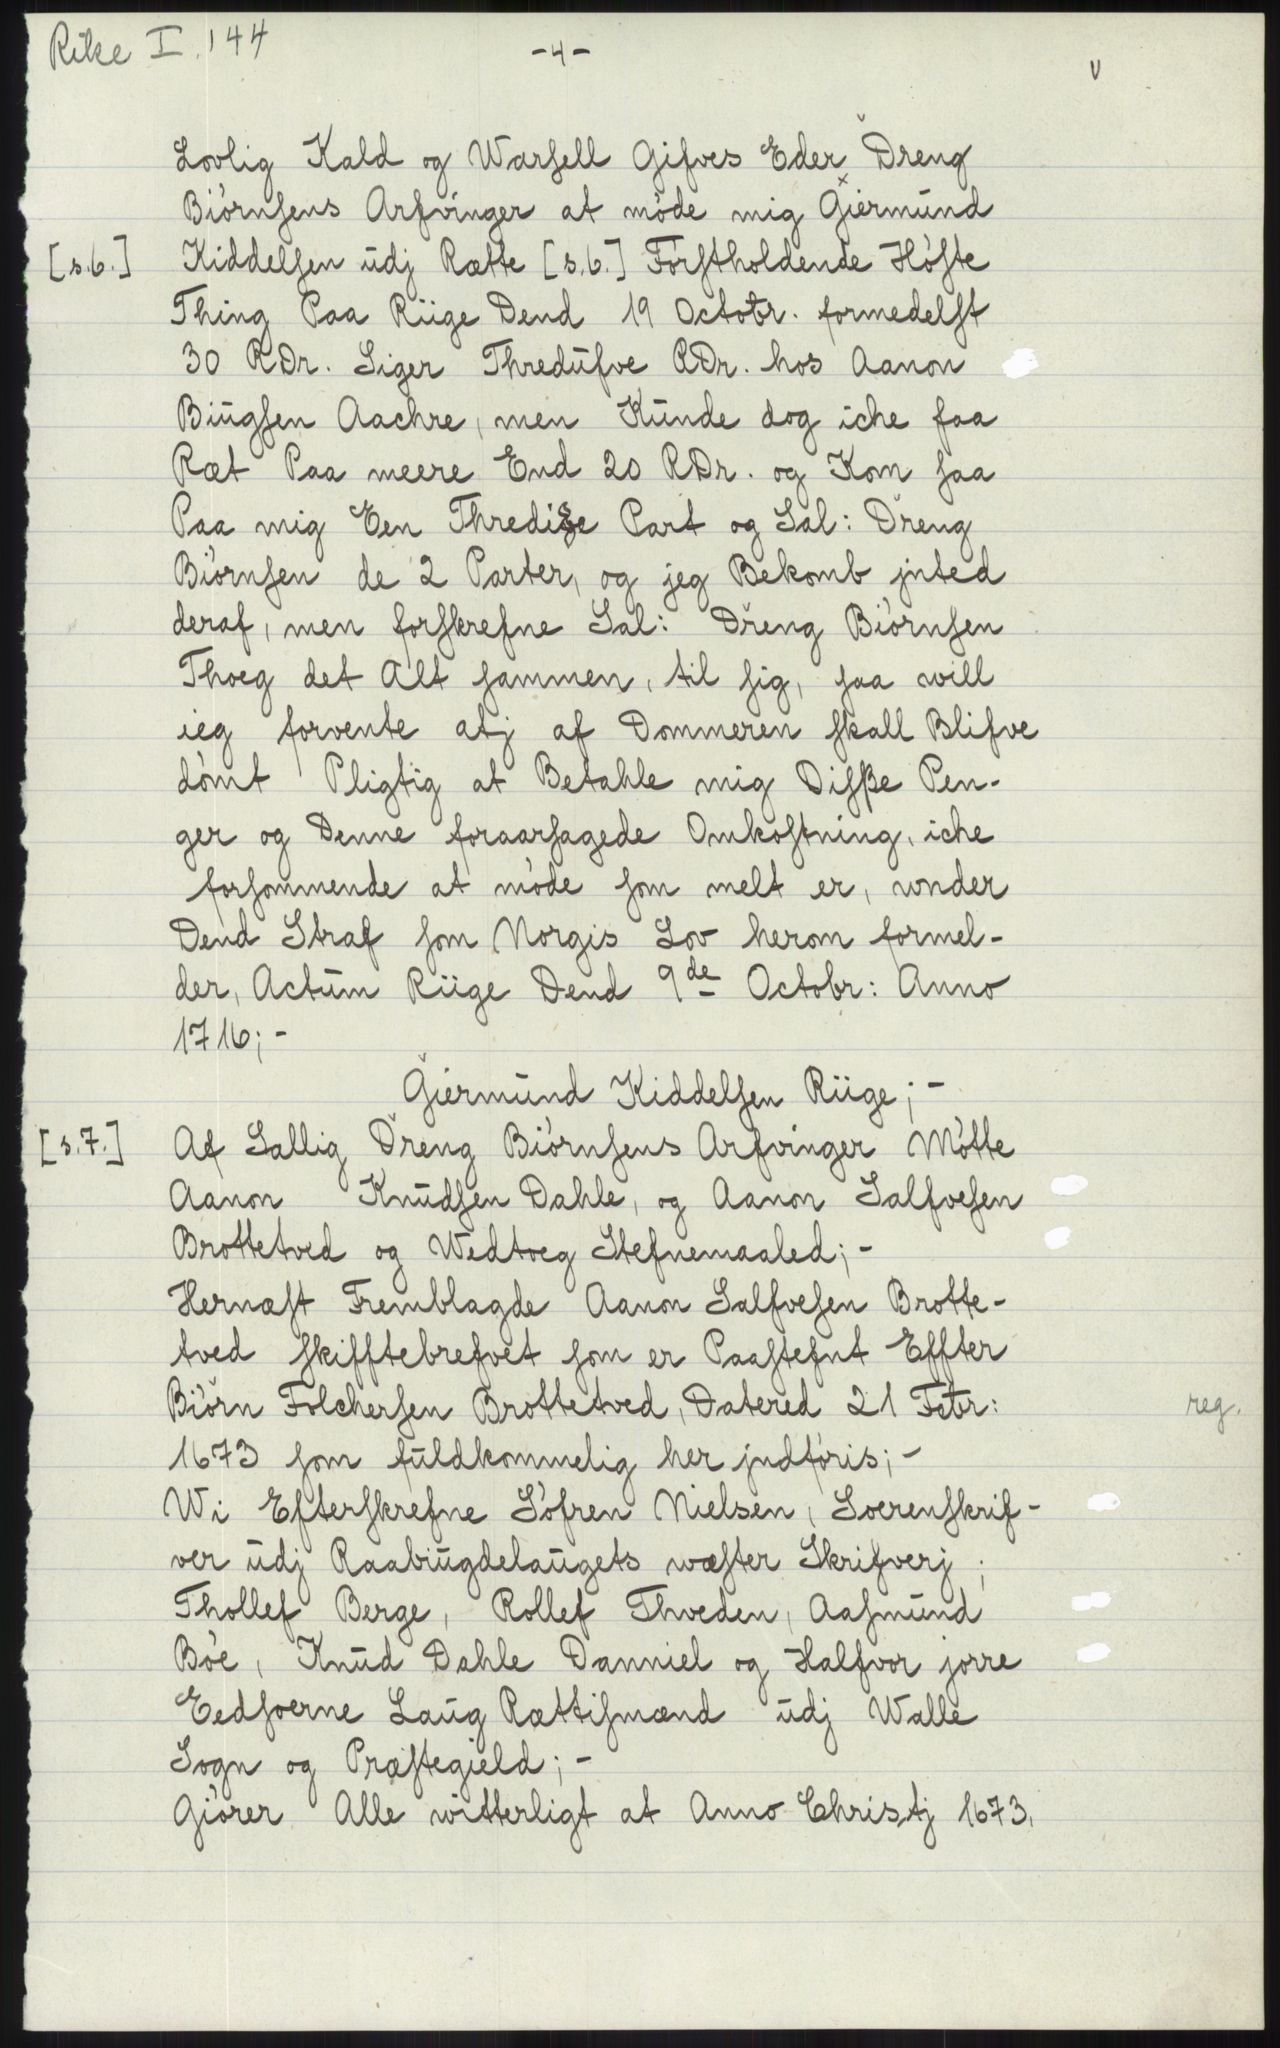 Rike I. 144
-4-
v
Lovlig Kald og Warsell Gifves Eder Dreng
Biórnsens Arfvinger at móde mig Giermund
[s.6.] Kiddelsen udj Rætte [s.6.] Førstholdende Hóste
Thing Paa Riige Dend 19 Octobr. formedelst
30 RDr. Siger Thredufve RDr. hos Aanon
Biugsen Aachre, men Kunde dog iche faa
Ræt Paa meere End 20 RDr. og Kom saa
Paa mig Een Thredige Part og Sal: Dreng
Biórnsen de 2 Parter, og jeg Bekomb jnted
deraf, men forskrefne Sal: Dreng Biórnsen
Thoeg det Alt sammen, til sig, saa will
ieg forvente atj af Dommeren skall Blifve
dómt Pligtig at Betahle mig Disße Pen-
ger og Denne foraarsagede Omkostning, iche
forsommende at móde som melt er, wnder
Dend Straf som Norgis Lov herom formel-
der, Actum Riige Dend 9de Octobr: Anno
1716; -
Giermund Kiddelsen Riige; -
[s.7.] Af Sallig Dreng Biórnsens Arfvinger Mótte
Aanon Knudsen Dahle, og Aanon Salfvesen
Brottetved og Wedtoeg Stefnemaaled; -
Hernæst Fremblagde Aanon Salfvesen Brotte-
tved skifftebrefvet som er Paastefnt Effter
Biórn Folchersen Brottetved, Datered 21 Febr: reg.
1673 som fuldkommelig her jndfóris; -
Wi Efterskrefne Sófren Nielsen, Soerenskrif-
ver udj Raabiugdelaugets wæster Skrifverj;
Thollef Berge, Rollef Thveden, Aasmund
Bóe, Knud Dahle Danniel og Halfvor jorre
Eedsoerne Laug Rættismænd udj Walle
Sogn og Præstegield; -
Giórer Alle witterligt at Anno Christj 1673,